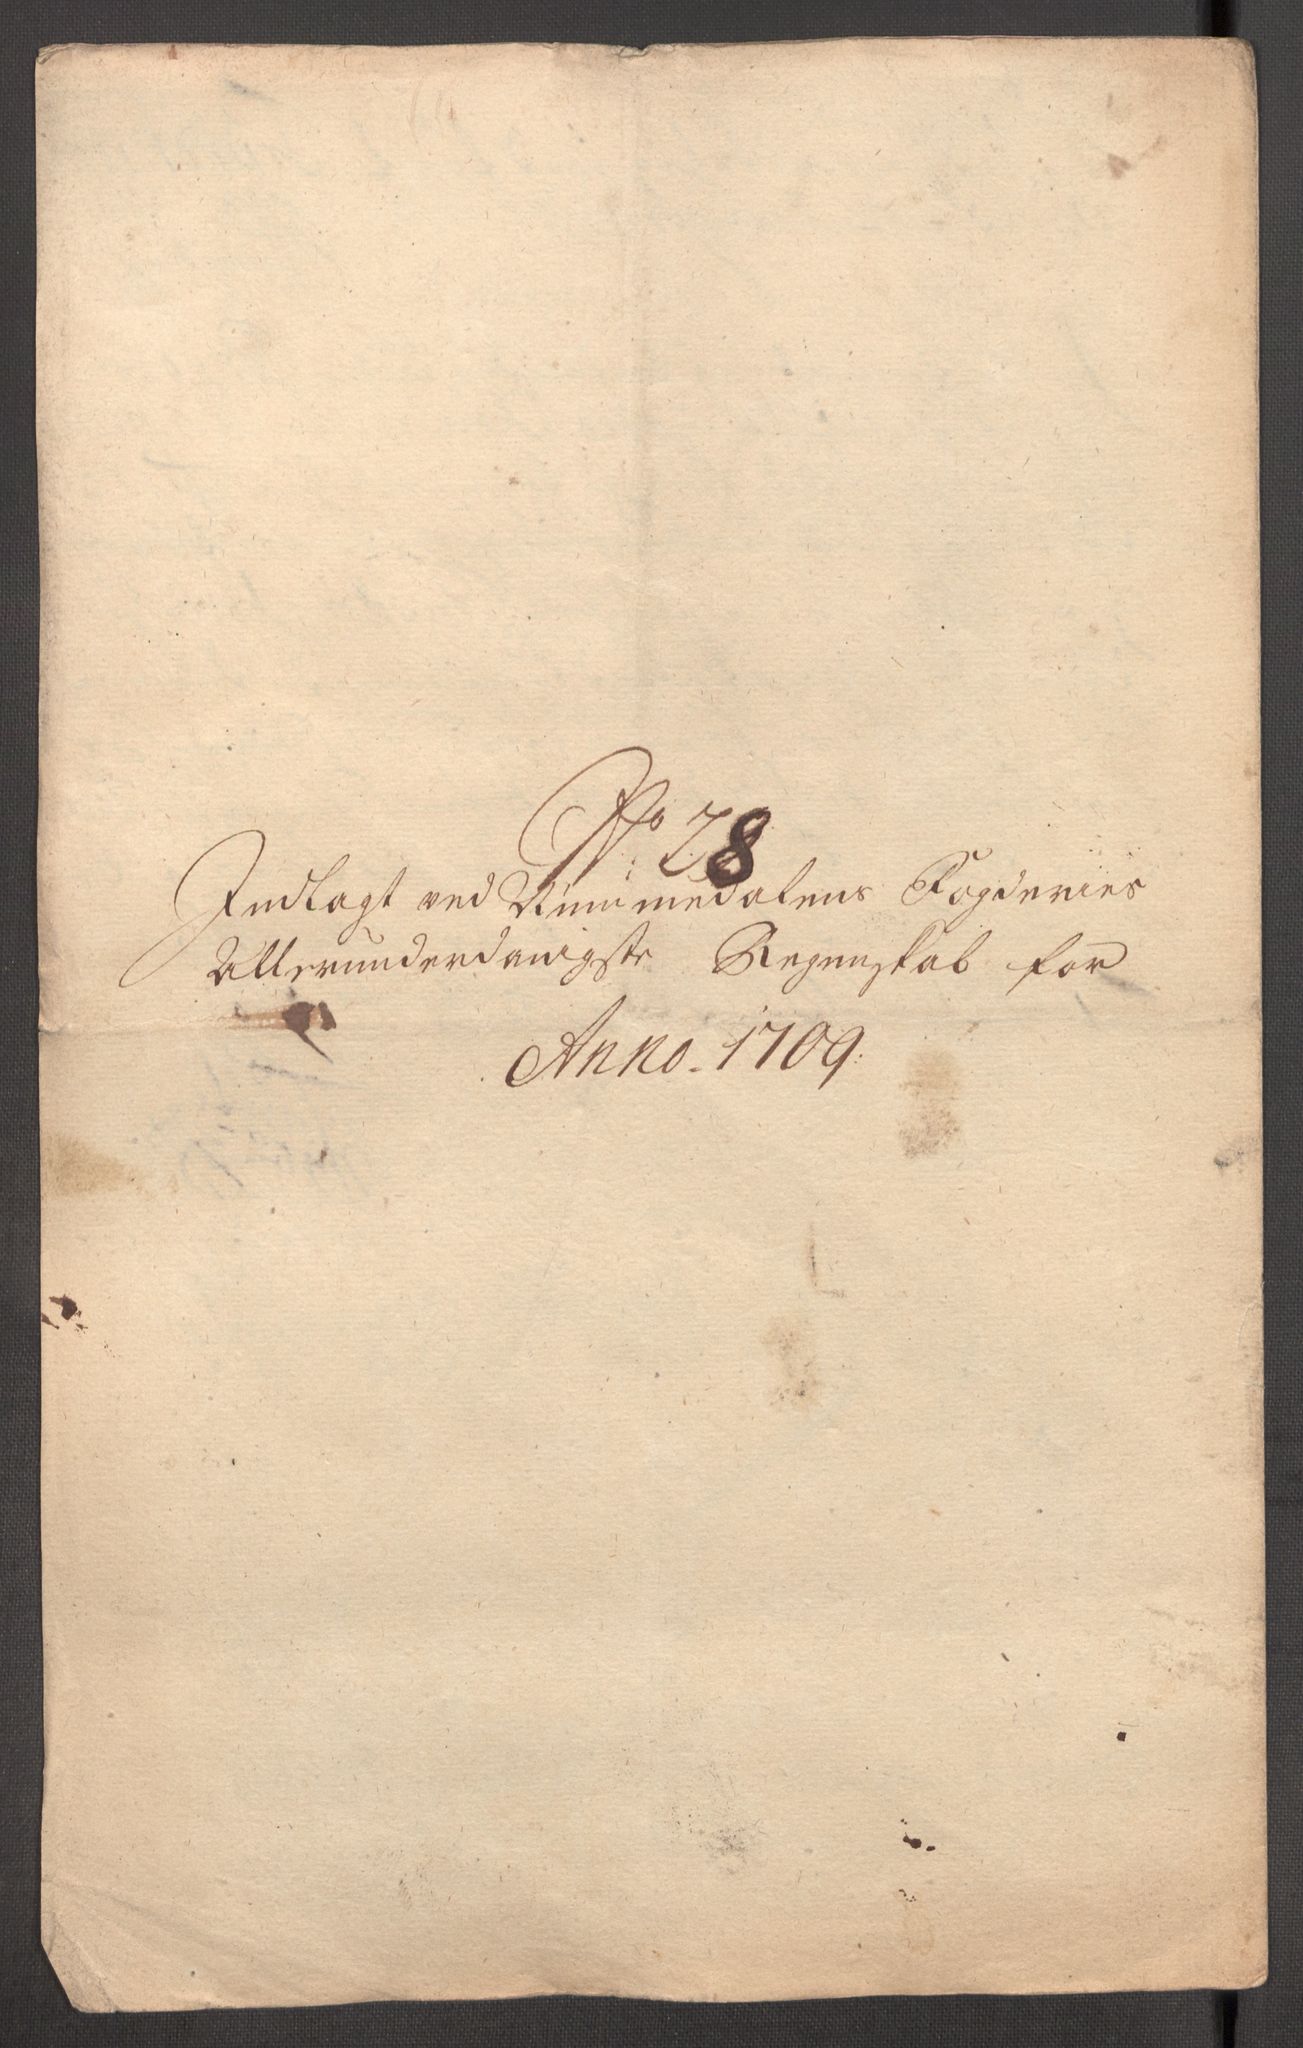 No: 28
Indlagt ved Nummedalens Fogderies
Allerunderdanigste Regenskab for
Anno. 1709.